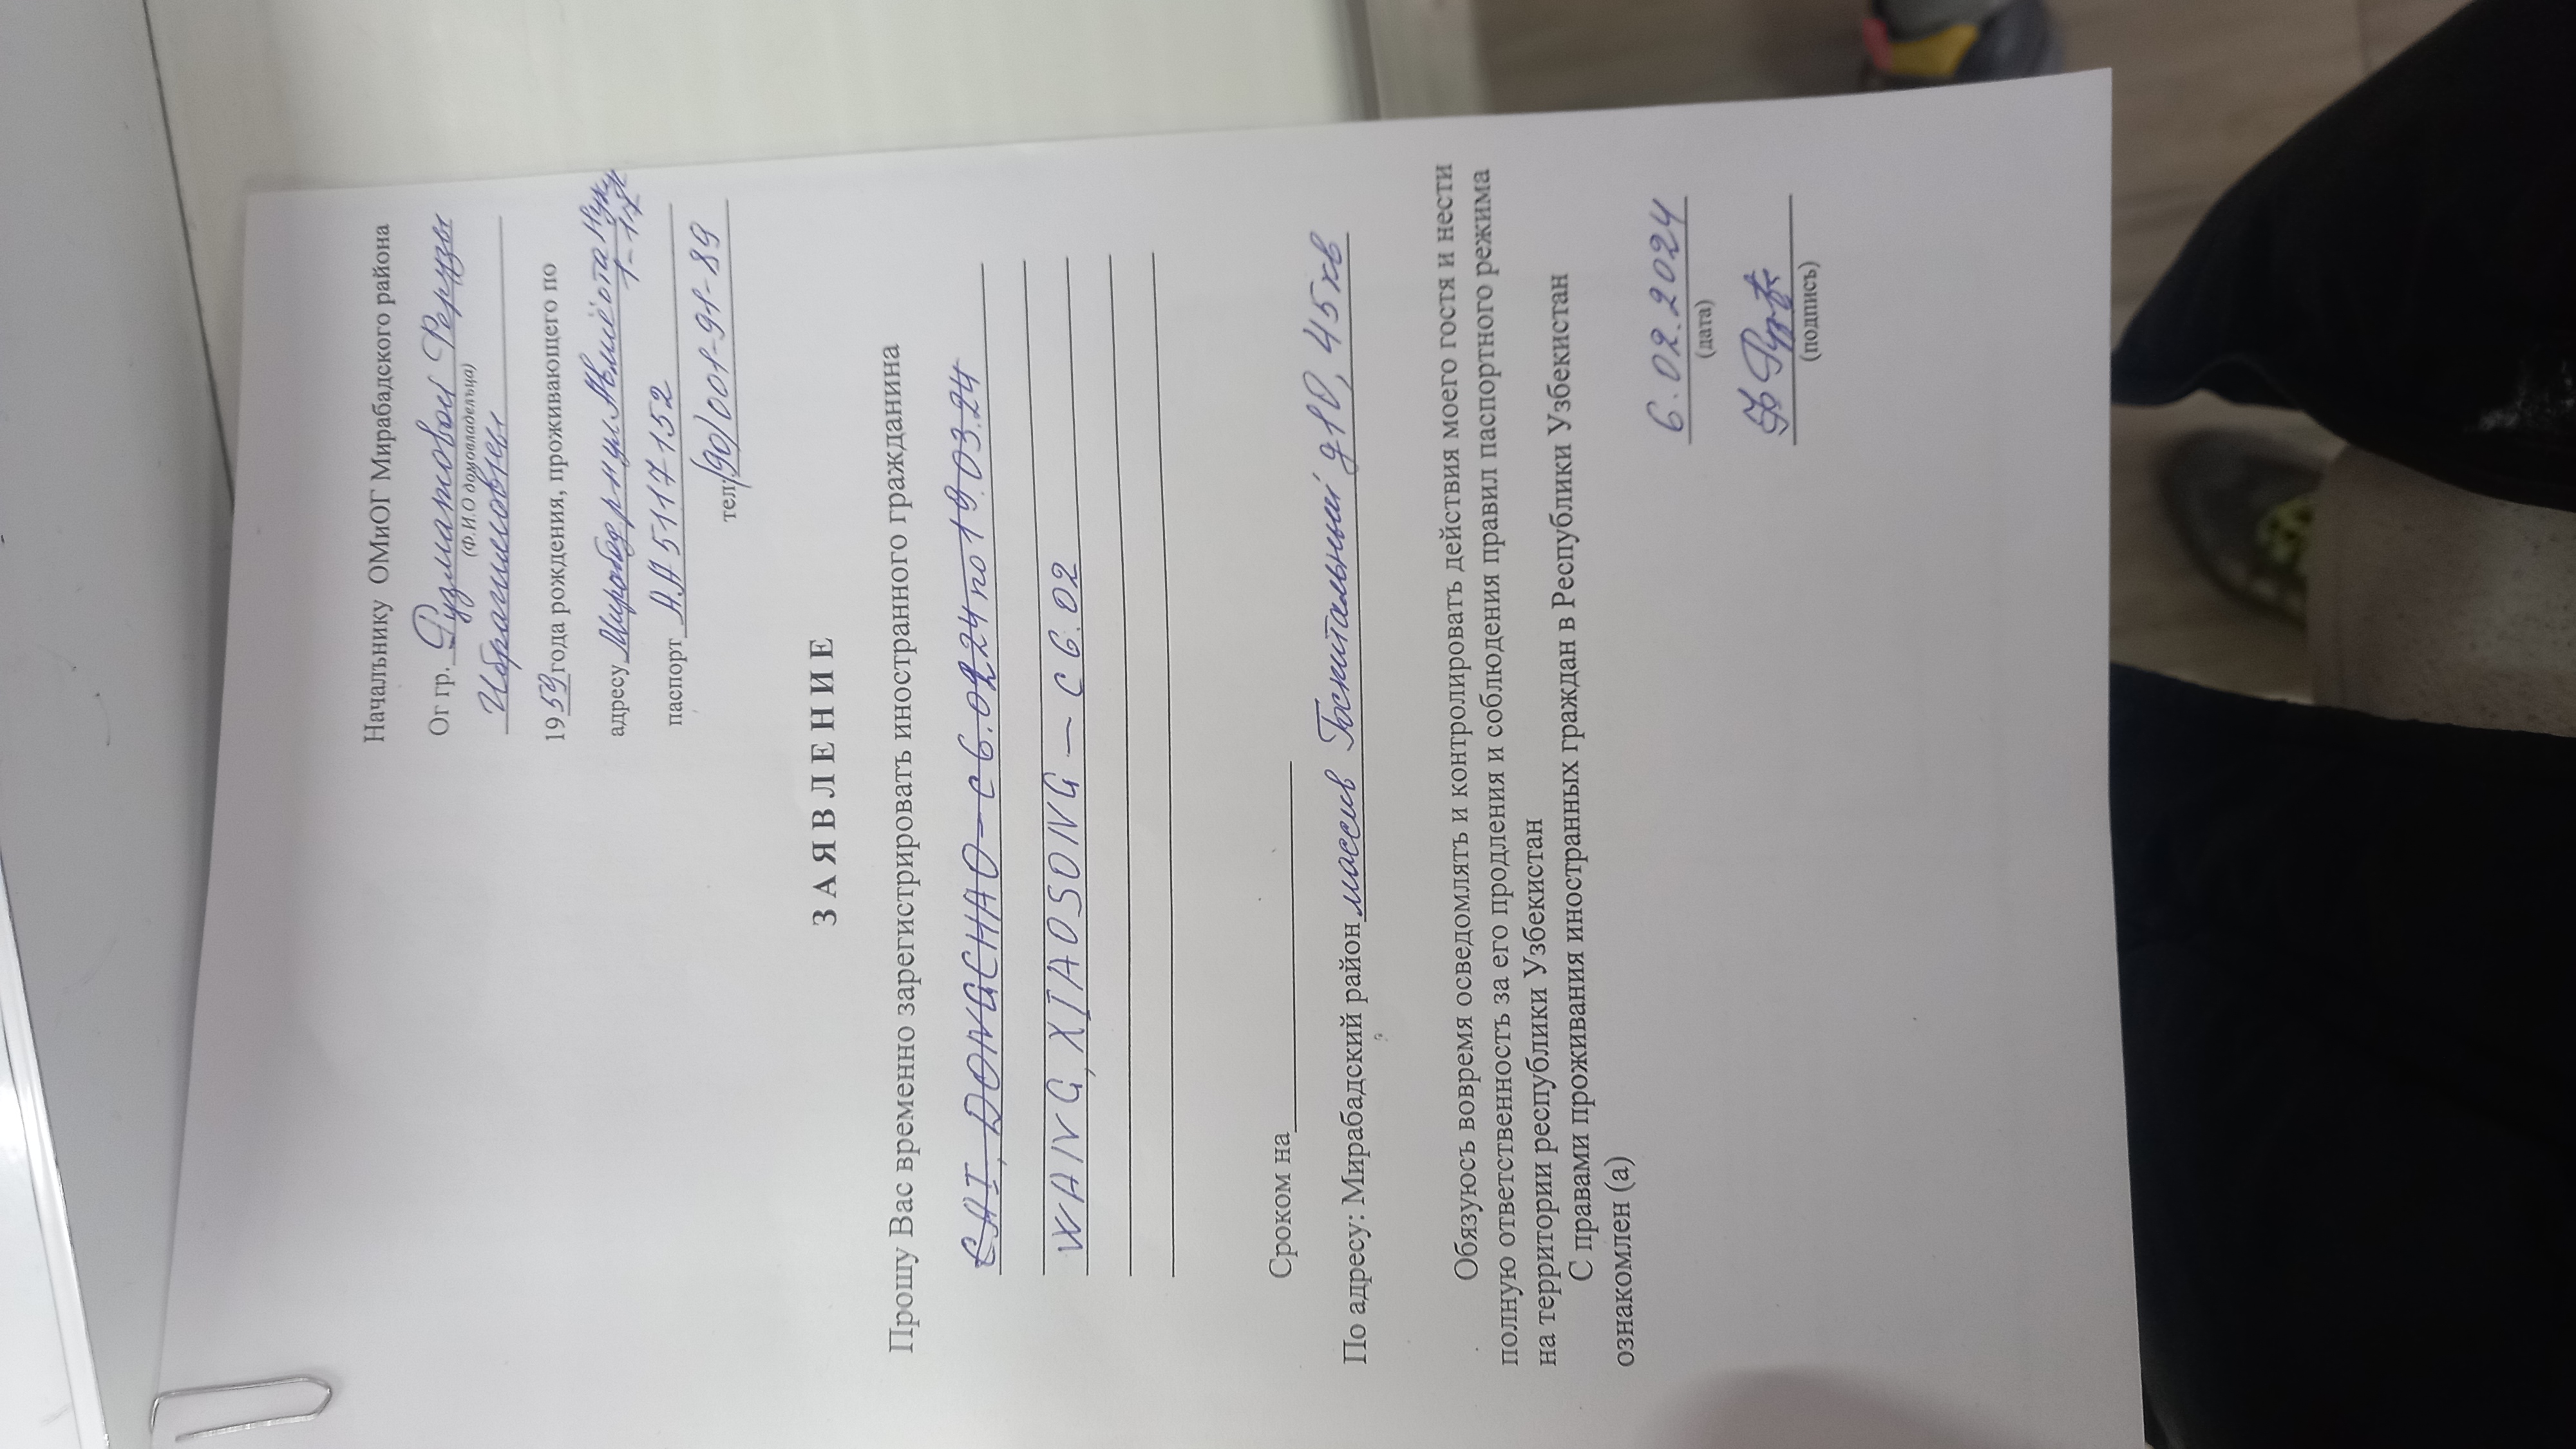 Началънику ОМиОГ Мирабадского района
Ог гр. Рузматовой Ферузы
(Ф.И.О домовладелъца)
Ибрагимовны
1959 года рождения, проживающего по
адресу Мирабад р-н ул Авлиё ота Нукус
1-17
паспорт АА 5117152
тел: (90) 001-91-89
ЗАЯВЛЕНИЕ
Прошу Вас временно зарегистрироватъ иностранного гражданина
CAI, DONGCHAO - с 6.02.24 по 19.03.24
WANG, XIAOSONG — с 6.02
Сроком на
По адресу: Мирабадский район массив Госпитальный д10, 45 кв
Обязуюсъ вовремя осведомлятъ и контролироватъ действия моего гостя и нести
полную ответственностъ за его продления и соблюдения правил паспортного режима
на территории республики Узбекистан
С правами проживания иностранных граждан в Республики Узбекистан
ознакомлен (а)
6.02.2024
(дата)
(подписъ)